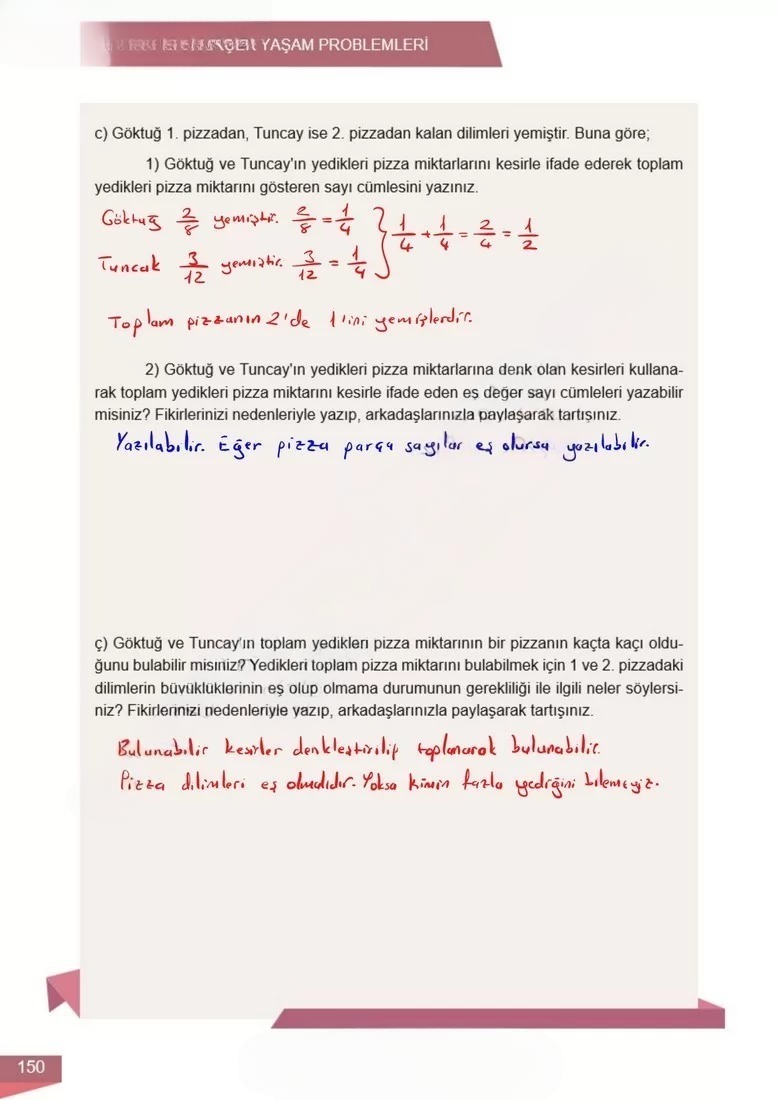 GERÇEK YAŞAM PROBLEMLERİ
c) Göktuğ 1. pizzadan, Tuncay ise 2. pizzadan kalan dilimleri yemiştir. Buna göre;
1) Göktuğ ve Tuncay'ın yedikleri pizza miktarlarını kesirle ifade ederek toplam
yedikleri pizza miktarını gösteren sayı cümlesini yazınız.
Göktuğ 2/8 yemiştir. 2/8 = 1/4 } 1/4 + 1/4 = 2/4 = 1/2
Tuncak 3/12 yemiştir. 3/12 = 1/4
Toplam pizzanın 2'de 1'ini yemişlerdir.
2) Göktuğ ve Tuncay'ın yedikleri pizza miktarlarına denk olan kesirleri kullana-
rak toplam yedikleri pizza miktarını kesirle ifade eden eş değer sayı cümleleri yazabilir
misiniz? Fikirlerinizi nedenleriyle yazıp, arkadaşlarınızla paylaşarak tartışınız.
Yazılabilir. Eğer pizza parça sayılar eş olursa yazılabilir.
ç) Göktuğ ve Tuncay'ın toplam yedikleri pizza miktarının bir pizzanın kaçta kaçı oldu-
ğunu bulabilir misiniz? Yedikleri toplam pizza miktarını bulabilmek için 1 ve 2. pizzadaki
dilimlerin büyüklüklerinin eş olup olmama durumunun gerekliliği ile ilgili neler söylersi-
niz? Fikirlerinizi nedenleriyle yazıp, arkadaşlarınızla paylaşarak tartışınız.
Bulunabilir kesirler denkleştirilip toplanarak bulunabilir.
Pizza dilimleri eş olmalıdır. Yoksa kimin fazla yediğini bilemeyiz.
150